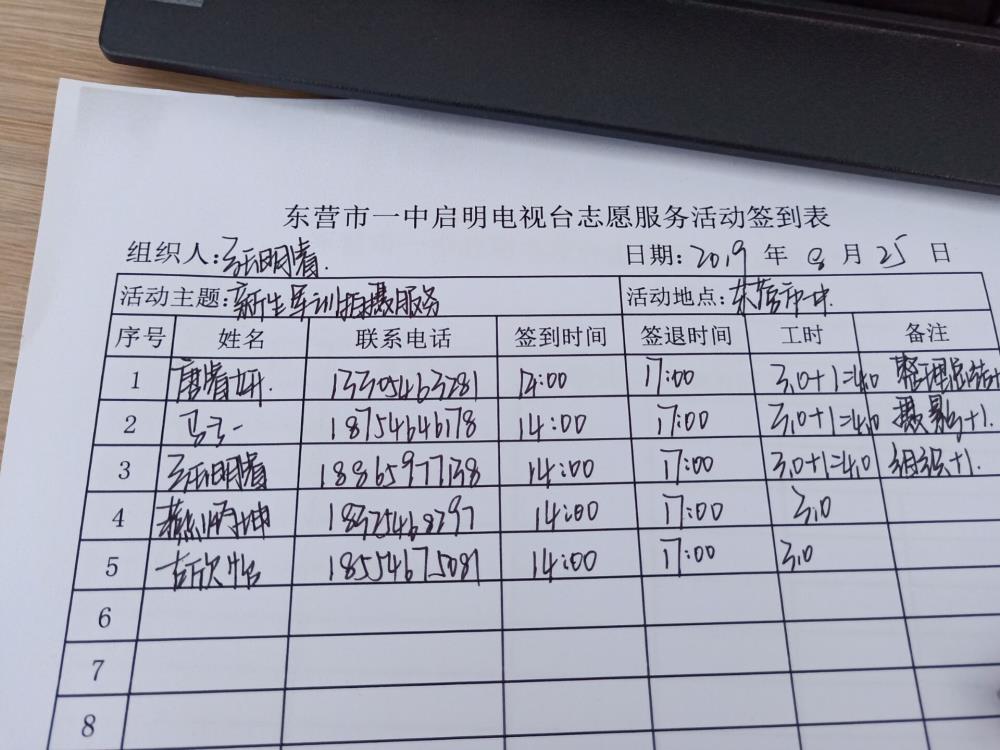 东营市一中启明电视台志愿服务活动签到表
组织人: 日期: 2019 年 8 月 25 日
活动主题: 新生军训拍摄服务 活动地点: 东营市一中
序号 姓名 联系电话 签到时间 签退时间 工时 备注
1 13305463281 14:00 17:00 3.0+1=4.0 整理总结+
2 马云一 18754646178 14:00 17:00 3.0+1=4.0 摄影+1.
3 18865977138 14:00 17:00 3.0+1=4.0 组织+1.
4 14:00 17:00 3.0
5 吉欣怡 18554675081 14:00 17:00 3.0
6
7
8